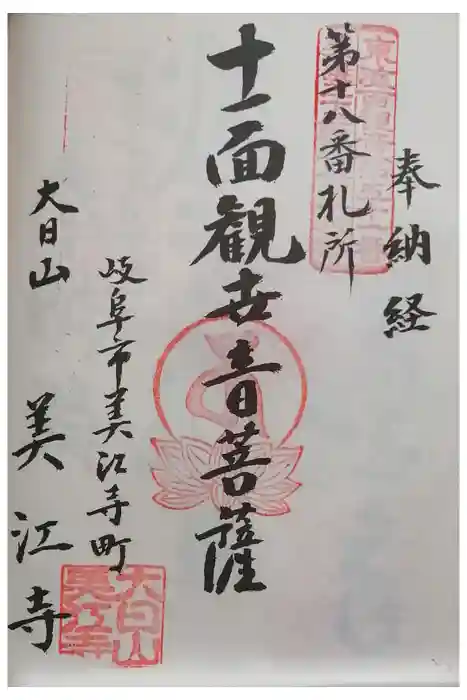 奉納経
第十八番札所
十一面観世音菩薩
岐阜市美江寺町
大日山 美江寺
大日山
美江寺